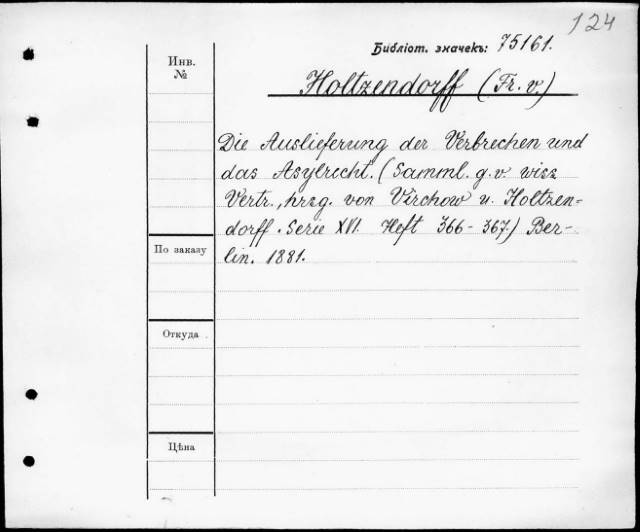 124
Библіот. значекъ: 75161.
Инв.
№
Holtzendorff (Fr. v.)
Die Auslieferung der Verbrechen und
das Asylrecht. (Samml. g. v. wiss
Vertr., hrsg. von Virchow u. Holtzen=
dorff. Serie XVI. Heft 366-367.) Ber-
lin. 1881.
По заказу
Откуда
Цѣна